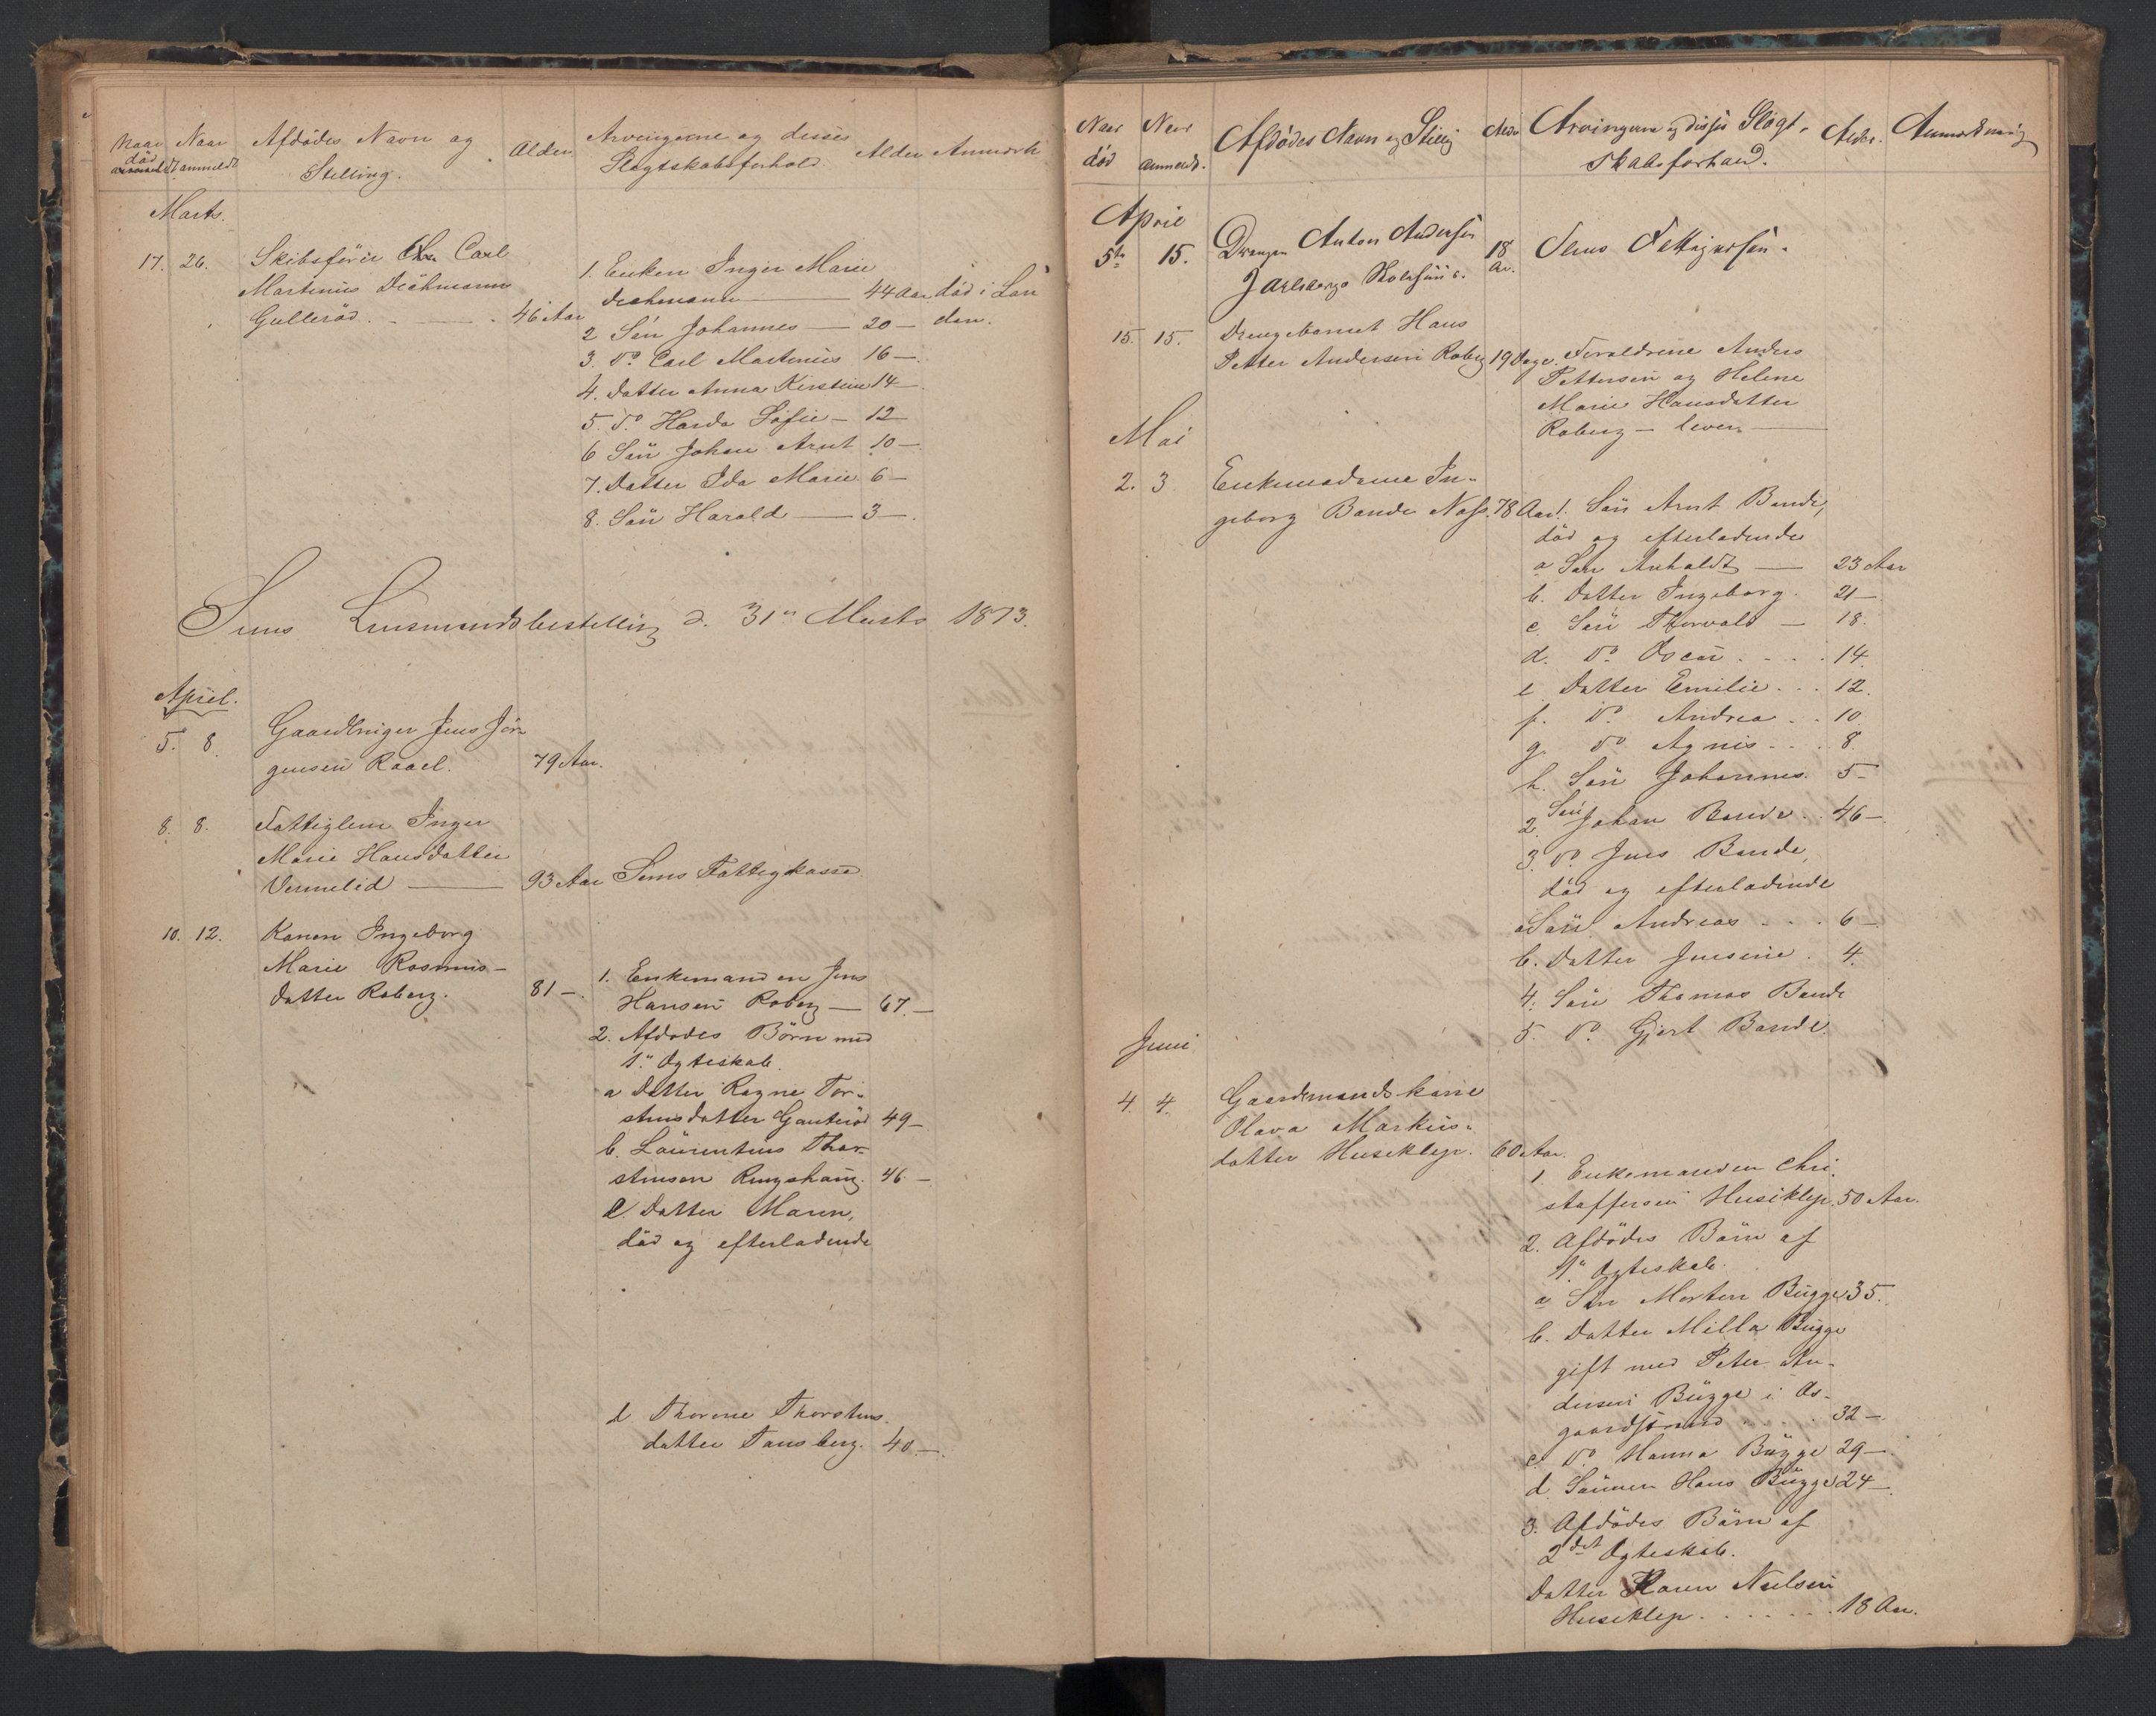 Naar død anmeldt
Naar anmeldt
Afdødes Navn og Stilling.
Alder
Arvingerne og disses Slegtskabsforhold
Alder
Anmærk
Marts.
17. 26. Skibsfører Carl
Martinius Dichmann
Gullerød. 46 Aar
1. Enken Inger Marie
Dichmann 44 Aar død i Lon
don.
2 Søn Johannes — 20 —
3. do Carl Martinius 16 —
4. Datter Anna Kirstine 14 —
5. do Harda Sofie — 12
6 Søn Johan Arnt 10 —
7. Datter Ida Marie 6 —
8. Søn Harald — 3 —.
Sems Lensmandsbestilling d. 31te Marts 1873.
April.
5. 8. Gaardbruger Jens Jør
gensen Raael. 79 Aar.
8. 8. Fattiglem Inger
Marie Hansdatter
Vermelid — 93 Aar Sems Fattigkasse
10. 12. Konen Ingeborg
Marie Rasmus-
datter Roberg. 81 —.
1. Enkemanden Jens
Hansen Roberg — 67. —
2. Afdødes Børn med
1ste Ægteskab.
a Datter Ragne Tor-
stensdatter Gauterød 49 —
b. Laurentius Thor-
stensen Ringshaug. 46 —
c. Datter Maren,
død og efterladende
d. Thorine Thorstens
datter Tønsberg. 40 —.
Naar død
Naar anmeldt.
Afdødes Navn og Stilling
Alder
Arvingerne og disses Slægt-
skabsforhold.
Alder.
Anmærkning
April
5te 15. Drengen Anton Andersen
Jarlsbergs Hovedgaard. 18 Aar. Sems Fattigkasse.
15. 15. Drengebarnet Hans
Petter Andersen Roberg 19 Dage. Forældrene Anders
Pettersen og Helene
Marie Hansdatter
Roberg — lever. —
Mai
2. 3 Enkemadame In-
geborg Bande Næs. 78 Aar 1. Søn Arnt Bande,
død og efterladende
a Søn Anholdt — 23 Aar
b. Datter Ingeborg. 21 —
c. Søn Thorvald — 18.
d. do Oscar . . . . 14.
e Datter Emilie . . . 12.
f. do Andrea . . 10
g. do Agnis . . . 8.
h. Søn Johannes. 5 —
2. Søn Johan Bande . . 46 —
3. do Jens Bande,
død og efterladende
a Søn Andreas . . . 6 —
b. Datter Jensine . 4.
4. Søn Thomas Bande
5. do Gjert Bande.
Juni
4. 4. Gaardmandskone
Olava Markus-
datter Huseklep. 60 Aar.
1. Enkemanden Chri-
stoffersen Huseklep. 50 Aar.
2. Afdødes Børn af
1ste Ægteskab.
a Søn Morten Bugge 35.
b. Datter Milla Bugge
gift med Peter An-
dersen Bugge i Aas-
gaardstrand . . . . . 32 —.
c. do Hanna Bugge 29 —.
d. Sønnen Hans Bugge 24 —.
3. Afdødes Børn af
2det Ægteskab.
Datter Karen Nielsen
Huseklep . . . . . . . 18 Aar.